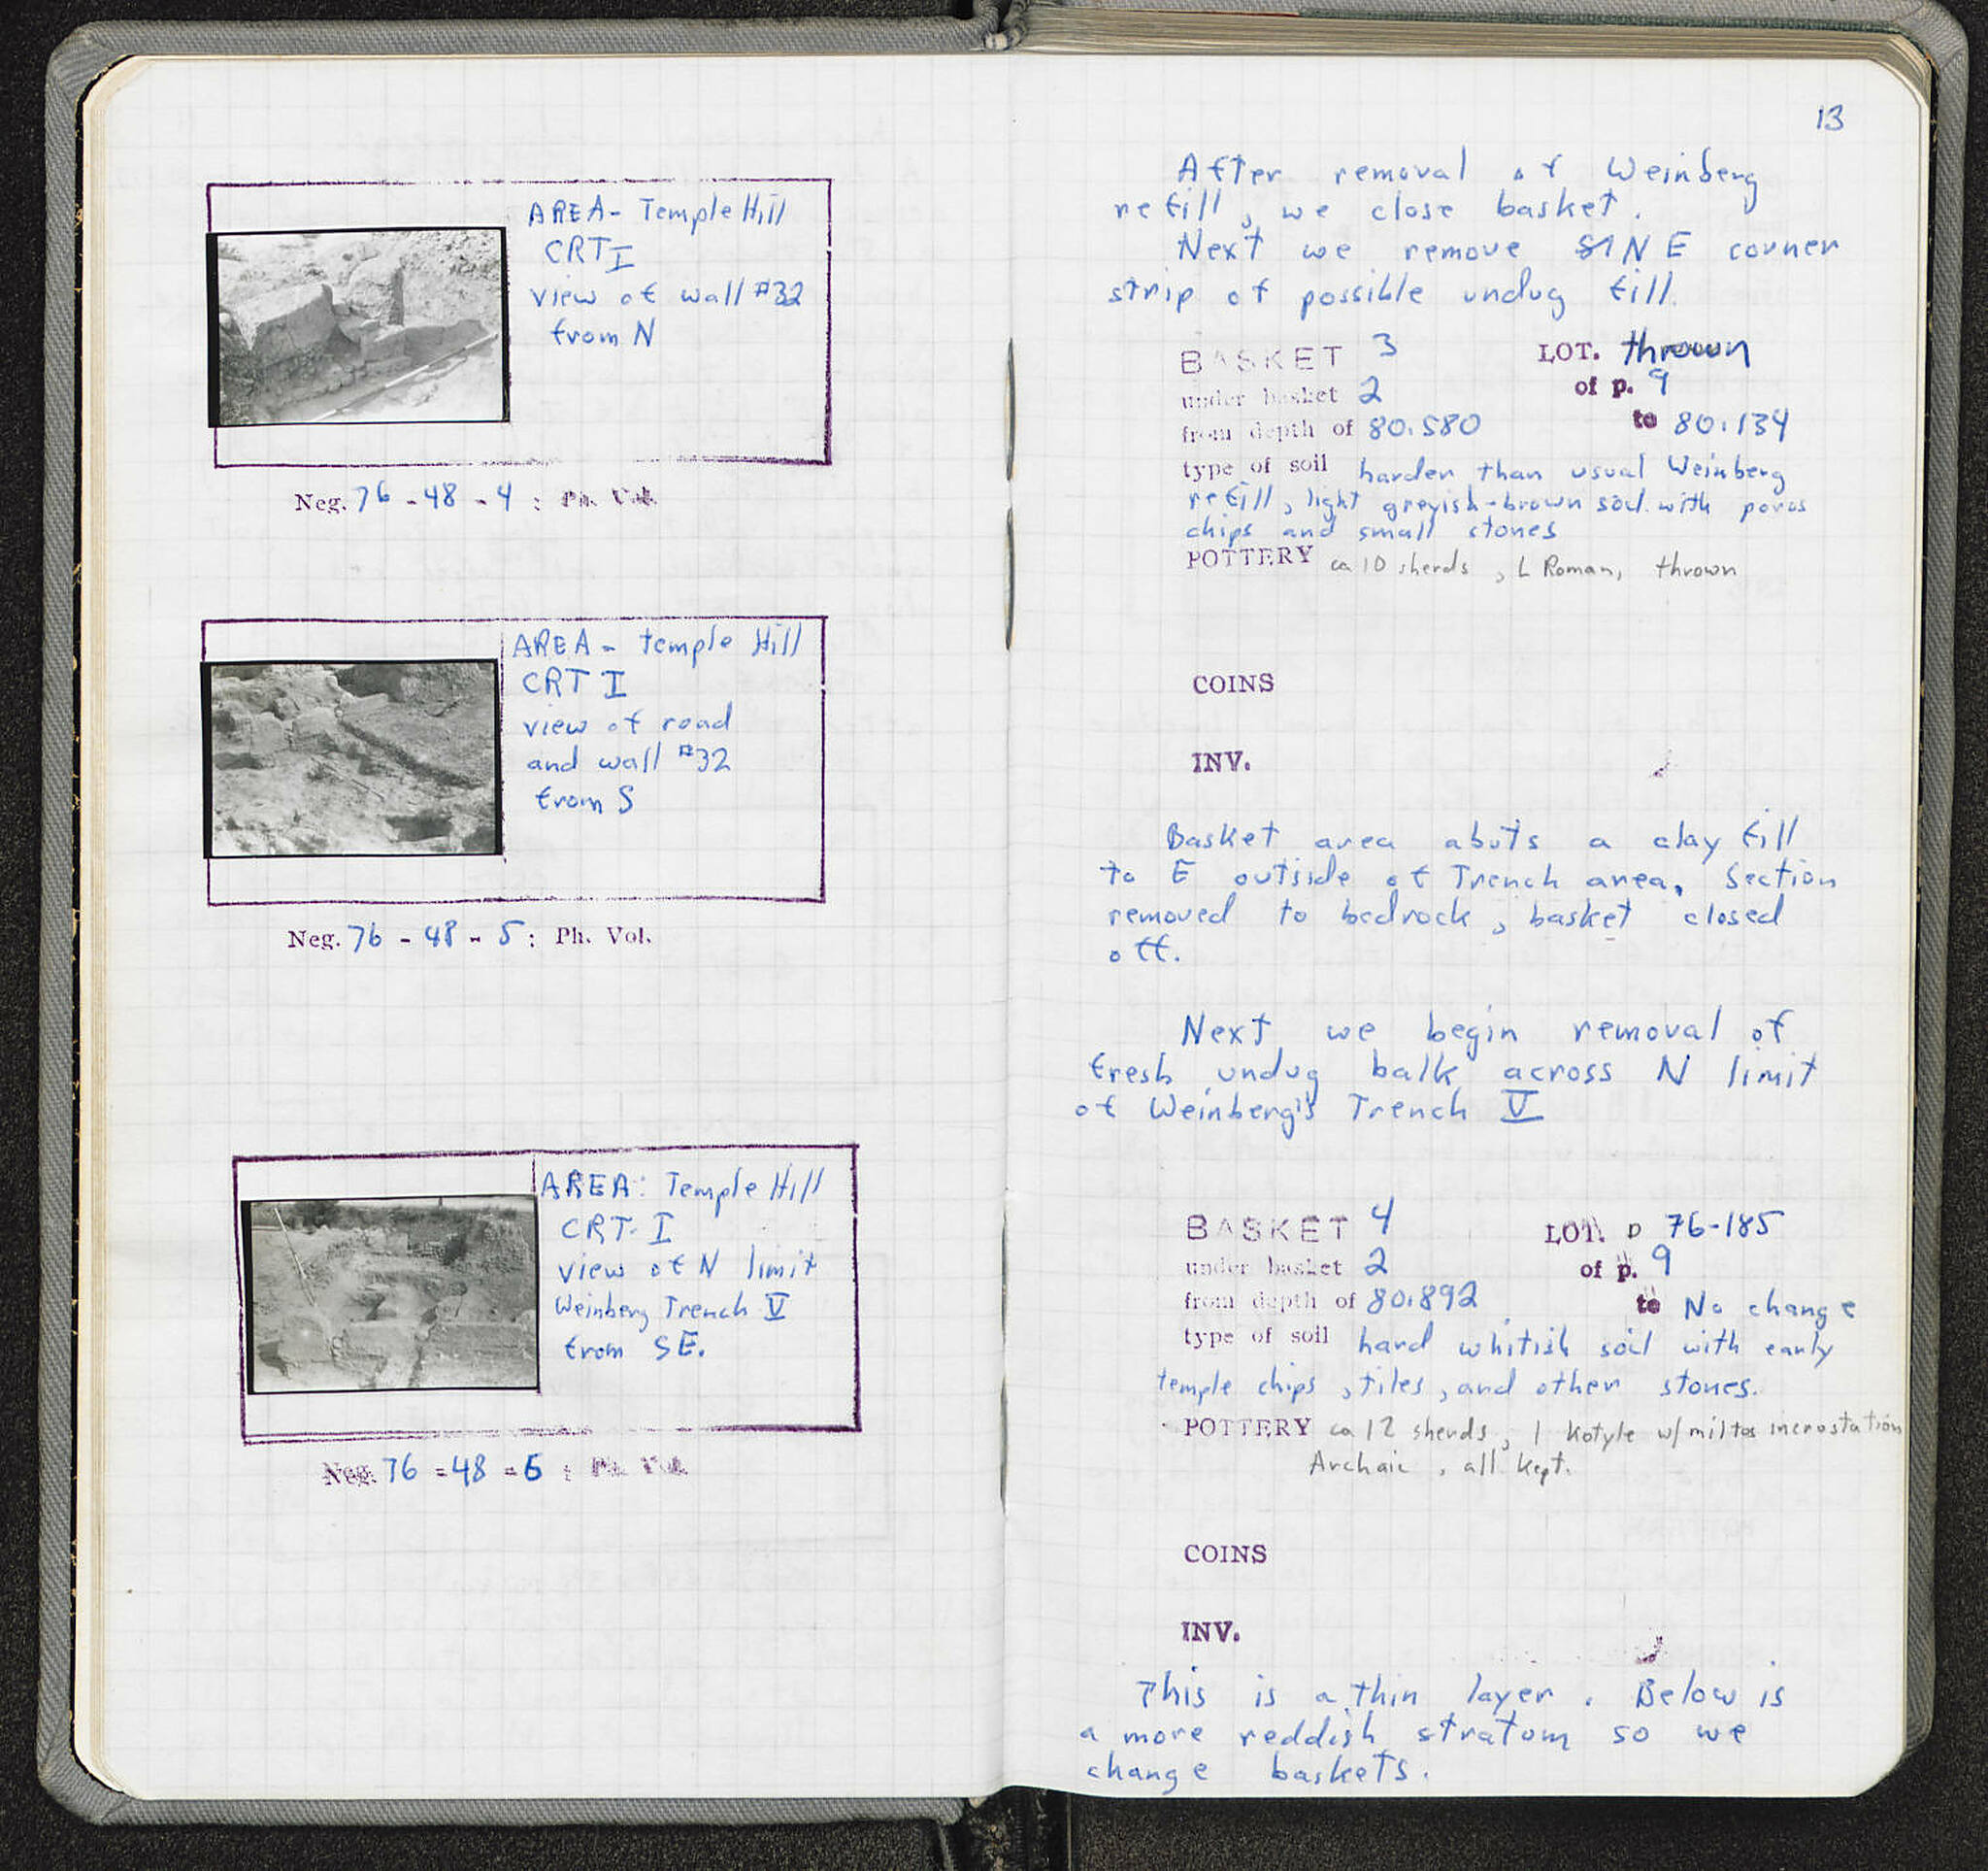 AREA- Temple Hill
CRT I
view of wall #32
from N
Neg. 76 - 48 - 4 : Ph. Vol.
AREA- temple Hill
CRT I
view of road
and wall #32
from S
Neg. 76 - 48 - 5 : Ph. Vol.
AREA: Temple Hill
CRT I
view of N limit
Weinberg Trench V
from SE.
Neg. 76 - 48 - 6 : Ph. Vol.
13
After removal of Weinberg
refill, we close basket.
Next we remove NE corner
strip of possible undug fill.
BASKET 3 LOT. thrown
under basket 2 of p. 9
from depth of 80.580 to 80.134
type of soil harder than usual Weinberg
refill, light greyish-brown soil with poros
chips and small stones
POTTERY ca 10 sherds, L Roman, thrown
COINS
INV.
Basket area abuts a clay fill
to E outside of Trench area. Section
removed to bedrock, basket closed
off.
Next we begin removal of
fresh undug balk across N limit
of Weinberg's Trench V
BASKET 4 LOT. 76-185
under basket 2 of p. 9
from depth of 80.892 to No change
type of soil hard whitish soil with early
temple chips, tiles, and other stones.
POTTERY ca 12 sherds, 1 kotyle w/ miltos incrostation
Archaic, all kept.
COINS
INV.
This is a thin layer. Below is
a more reddish stratum so we
change baskets.